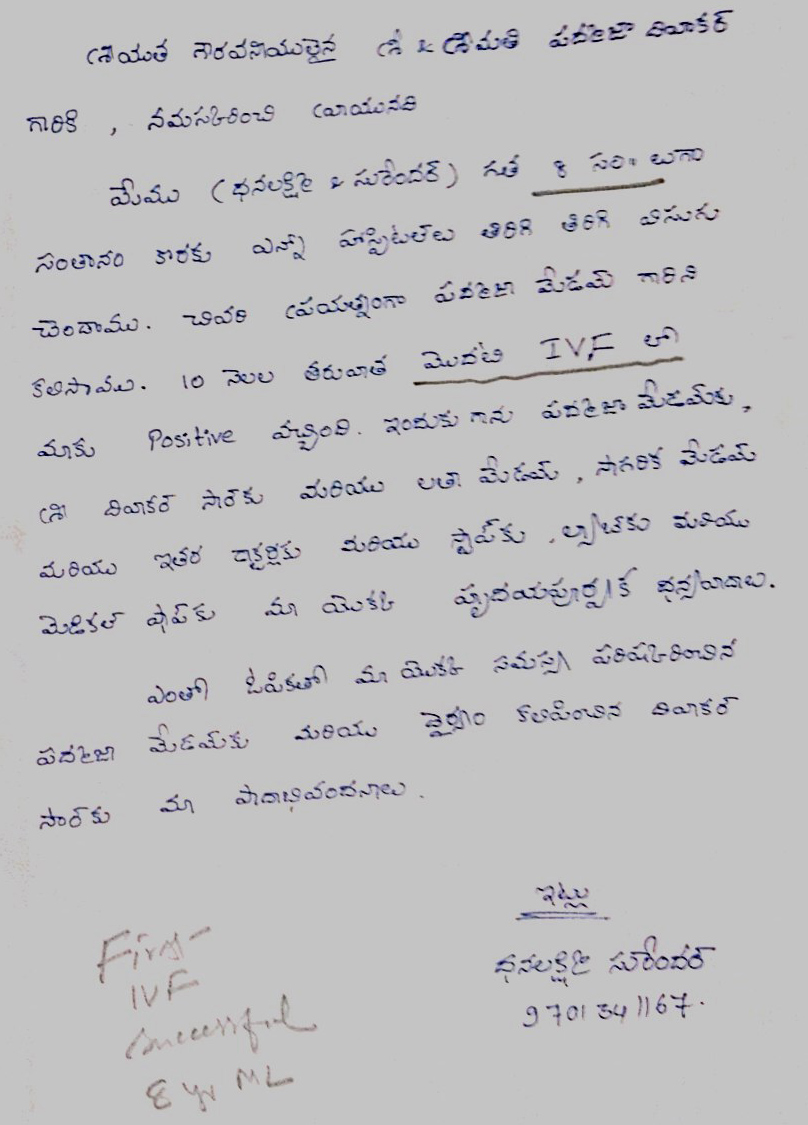 శ్రీయుత గౌరవనీయులైన శ్రీ & శ్రీమతి పద్మజా దివాకర్
గారికి , నమస్కరించి వ్రాయునది
మేము (ధనలక్ష్మి & సురేందర్) గత 8 సం॥లుగా
సంతానం కొరకు ఎన్నో హాస్పిటల్‌లు తిరిగి తిరిగి విసుగు
చెందాము. చివరి ప్రయత్నంగా పద్మజా మేడమ్ గారిని
కలిసాము. 10 నెలల తరువాత మొదటి IVF లో
మాకు Positive వచ్చింది. ఇందుకు గాను పద్మజా మేడమ్‌కు,
శ్రీ దివాకర్ సార్‌కు మరియు లతా మేడమ్ , సాగరిక మేడమ్
మరియు ఇతర డాక్టర్లకు మరియు స్టాఫ్‌కు , ల్యాబ్‌కు మరియు
మెడికల్ షాప్‌కు మా యొక్క హృదయపూర్వక ధన్యవాదాలు.
ఎంతో ఓపికతో మా యొక్క సమస్య పరిష్కరించిన
పద్మజా మేడమ్‌కు మరియు ధైర్యం కలిపించిన దివాకర్
సార్‌కు మా పాదాభివందనాలు .
ఇట్లు
ధనలక్ష్మి సురేందర్
9701341167.
First
IVF
successful
8 yr ML